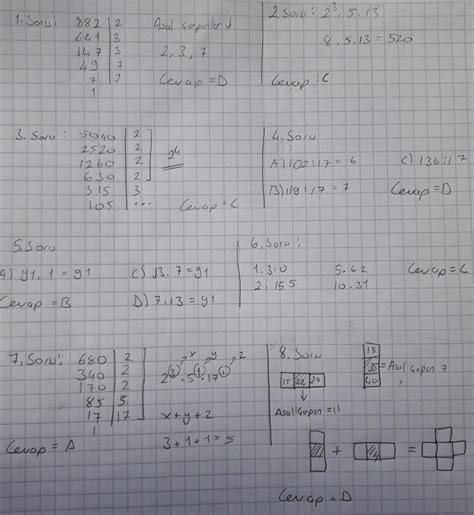 1. Soru: 882 | 2
441 | 3
147 | 3
49 | 7
7 | 7
1
Asal çarpanlar ↓
2, 3, 7
Cevap = D
2. Soru: 2³ . 5 . 13
8 . 5 . 13 = 520
Cevap: C
3. Soru: 5040 | 2
2520 | 2
1260 | 2
630 | 2
315 | 3
105 | ...
2⁴
Cevap = C
4. Soru
A) 102:17 = 6
C) 136:17
B) 119:17 = 7
Cevap = D
5. Soru
A) 91.1 = 91
C) 13.7 = 91
Cevap = B
D) 7.13 = 91
6. Soru:
1.310
5.62
2.155
10.31
Cevap = C
7. Soru: 680 | 2
340 | 2
170 | 2
85 | 5
17 | 17
1
x y z
2³ . 5¹ . 17¹
x + y + z
3 + 1 + 1 = 5
Cevap = A
8. Soru
15 22 27
Asal Çarpan = 11
18
35 = Asal çarpan 7
40
+ =
Cevap = D